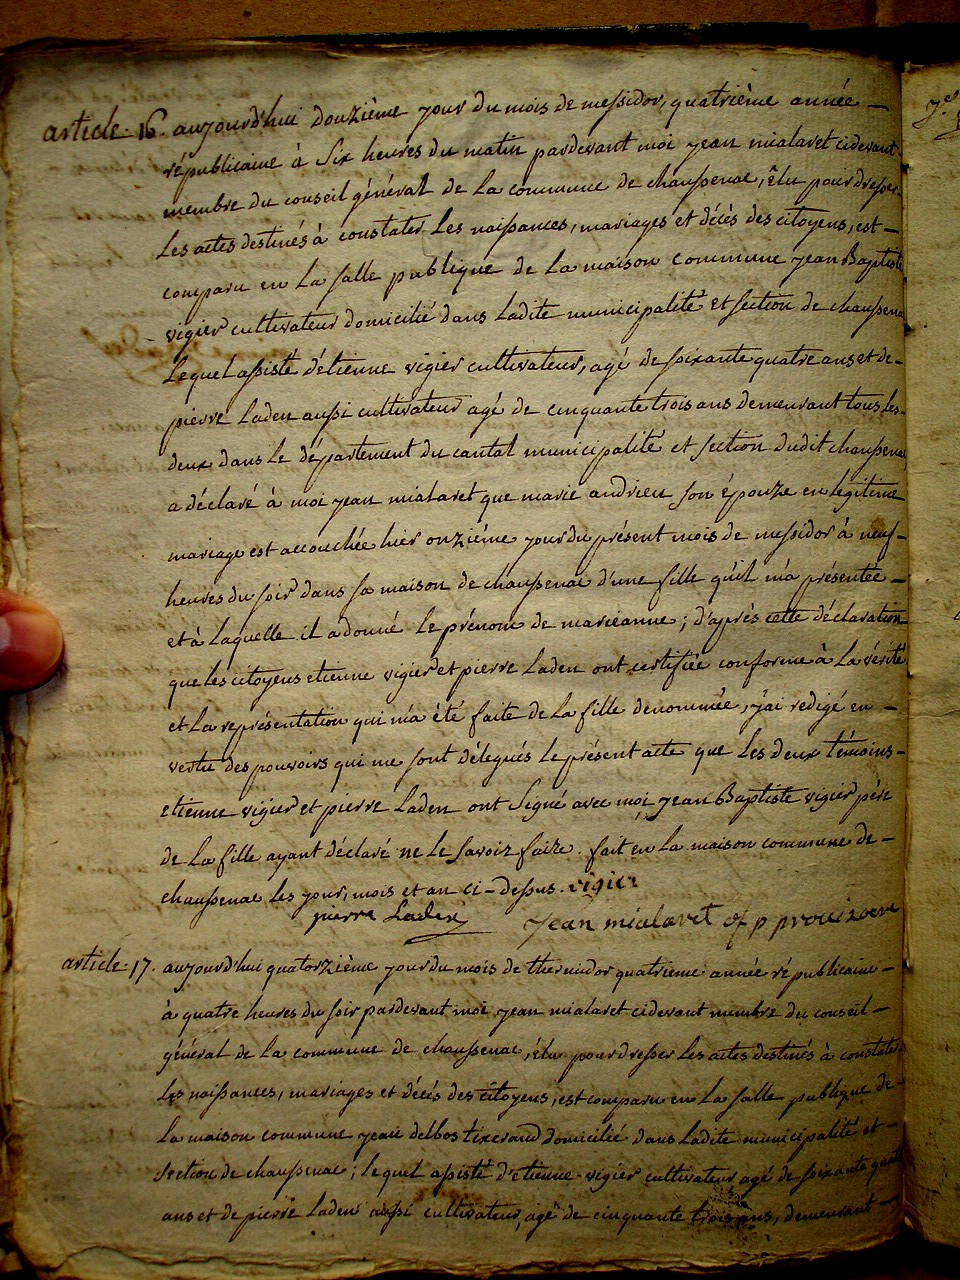 article 16. aujourd'hui douzième jour du mois de messidor, quatrième année –
républicaine à six heures du matin pardevant moi jean mialaret cidevant
membre du conseil général de la commune de chaussenac, élu pour dresser
les actes destinés à constater les naissances, mariages et décès des citoyens, est –
comparu en la salle publique de la maison commune jean Baptiste
vigier cultivateur domicilié dans ladite municipalité et section de chaussenac
lequel assisté d'étienne vigier cultivateur, agé de soixante quatre ans et de –
pierre Laden aussi cultivateur agé de cinquante trois ans demeurant tous les –
deux dans le département du cantal municipalité et section dudit chaussenac
a déclaré à moi jean mialaret que marie andrieu son épouze en légitime
mariage est accouchée hier onzième jour du présent mois de messidor à neuf –
heures du soir dans sa maison de chaussenac d'une fille qu'il m'a présentée –
et à laquelle il a donné le prénom de marieanne ; d'après cette déclaration
que les citoyens etienne vigier et pierre Laden ont certifiée conforme à la vérité
et la représentation qui m'a été faite de la fille denommée, j'ai redigé en –
vertu des pouvoirs qui me sont délegués le présent acte que les deux témoins –
etienne vigier et pierre Laden ont signé avec moi jean Baptiste vigier père
de la fille ayant déclaré ne le savoir faire. fait en la maison commune de –
chaussenac les jour, mois et an ci-dessus. vigier
pierre Laden jean mialaret of p provizoere
article 17. aujourd'hui quatorzième jour du mois de thermidor quatrieme année républicaine –
à quatre heures du soir pardevant moi jean mialaret cidevant membre du conseil –
général de la commune de chaussenac, élu pour dresser les actes destinés à constater
les naissances, mariages et décés des citoyens, est comparu en la salle publique de –
la maison commune jean delbos tixerand domicilié dans ladite municipalité et –
section de chaussenac ; lequel assisté d'etienne vigier cultivateur agé de soixante quatre
ans et de pierre Laden aussi cultivateur, agé de cinquante trois ans, demeurant –